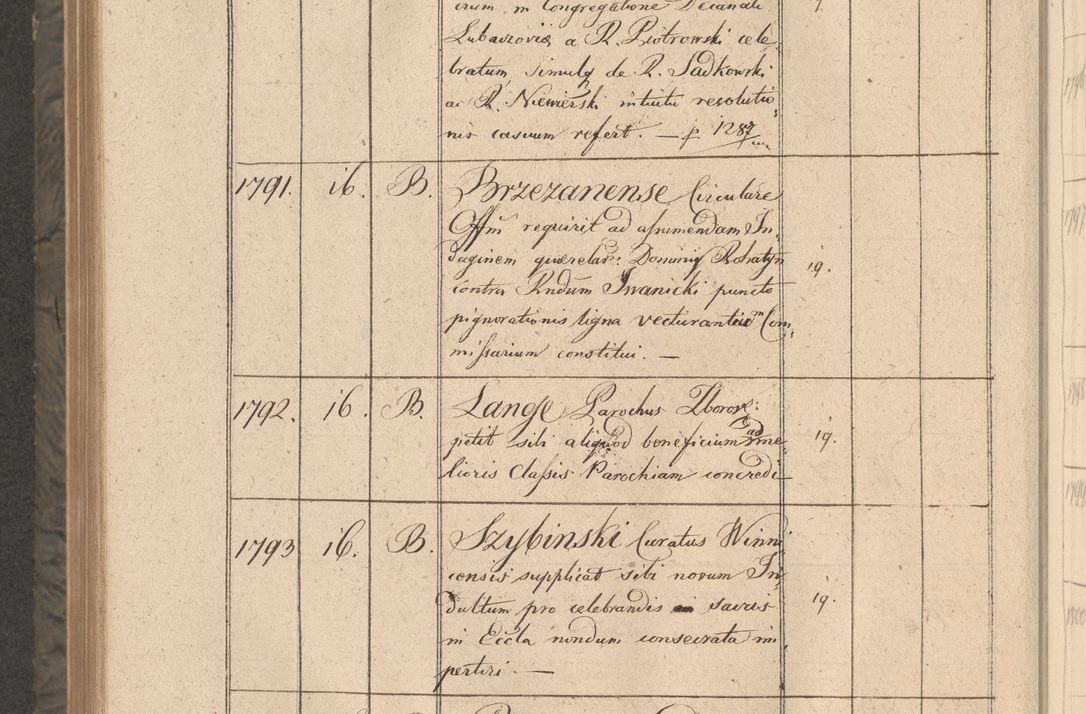 crum, in Congregatione Decanali
Lubaczoviæ a R. Piotrowski cele,
bratum, simulq de R. Sadkowski
ac R. Niewierski intuitu resolutio,
nis casuum refert. — p 1287
1791. 16. B. Brzezanense Circulare
Offm requirit ad assumendam In,
daginem querelar: Dominij Rohatyn 19.
contra Rndum Iwanicki puncto
pignorationis ligna vecturantium Com,
missarium constitui. —
1792. 16. B. Lange Parochus Zborov:
petit sibi aliquod beneficium ad me, 19.
lioris Classis Parochiam concredi
1793 16. B. Szybinski Curatus Winni,
censis supplicat sibi novum In,
dultum pro celebrandis sacris 19.
in Eccla nondum consecrata im,
pertiri. —